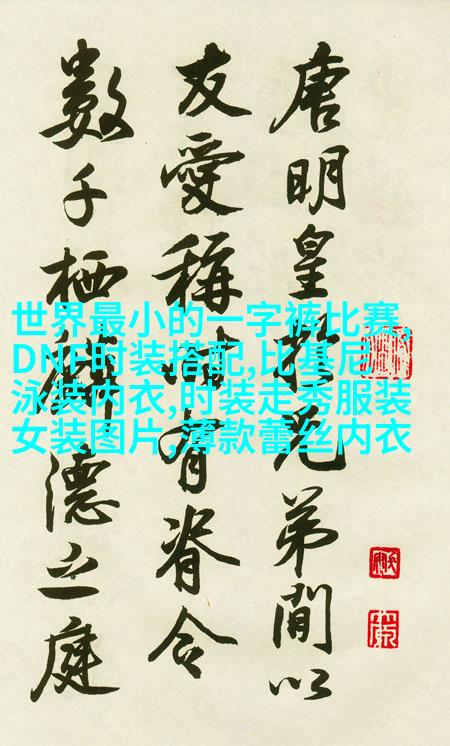 唐明皇於兄弟間以
友愛稱時有脊令
數千栖麟德之庭
世界最小的一字裤比赛,
DNF时装搭配,比基尼
泳装内衣,时装走秀服装
女装图片,薄款蕾丝内衣